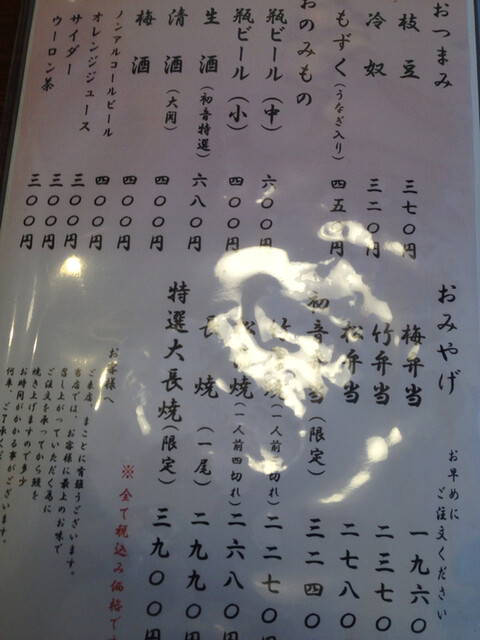 おつまみ
枝豆 三七〇円
冷奴 三二〇円
もずく(うなぎ入り) 四五〇円
おのみもの
瓶ビール(中) 六〇〇円
瓶ビール(小) 四〇〇円
生酒(初音特選) 六八〇円
清酒(大関) 四〇〇円
梅酒 四〇〇円
ノンアルコールビール 四〇〇円
オレンジジュース 三〇〇円
サイダー 三〇〇円
ウーロン茶 三〇〇円
おみやげ
お早めに
ご注文ください
梅弁当 一九六〇
竹弁当 二三七〇
松弁当 二七八〇
初音弁当(限定) 三二四〇
竹 焼(一人前四切れ) 二二七〇円
焼(一人前四切れ) 二六八〇円
長焼(一尾) 二九九〇円
特選大長焼(限定) 三九〇〇円
※全て税込み価格です
お客様へ
ご来店、まことに有難うございます。
当店では、お客様に最上のお味で
召し上がっていただく為に
ご注文を承ってから鰻を
焼き上げますので多少
お時間がかかる事がございます。
何卒、ご了承くだ